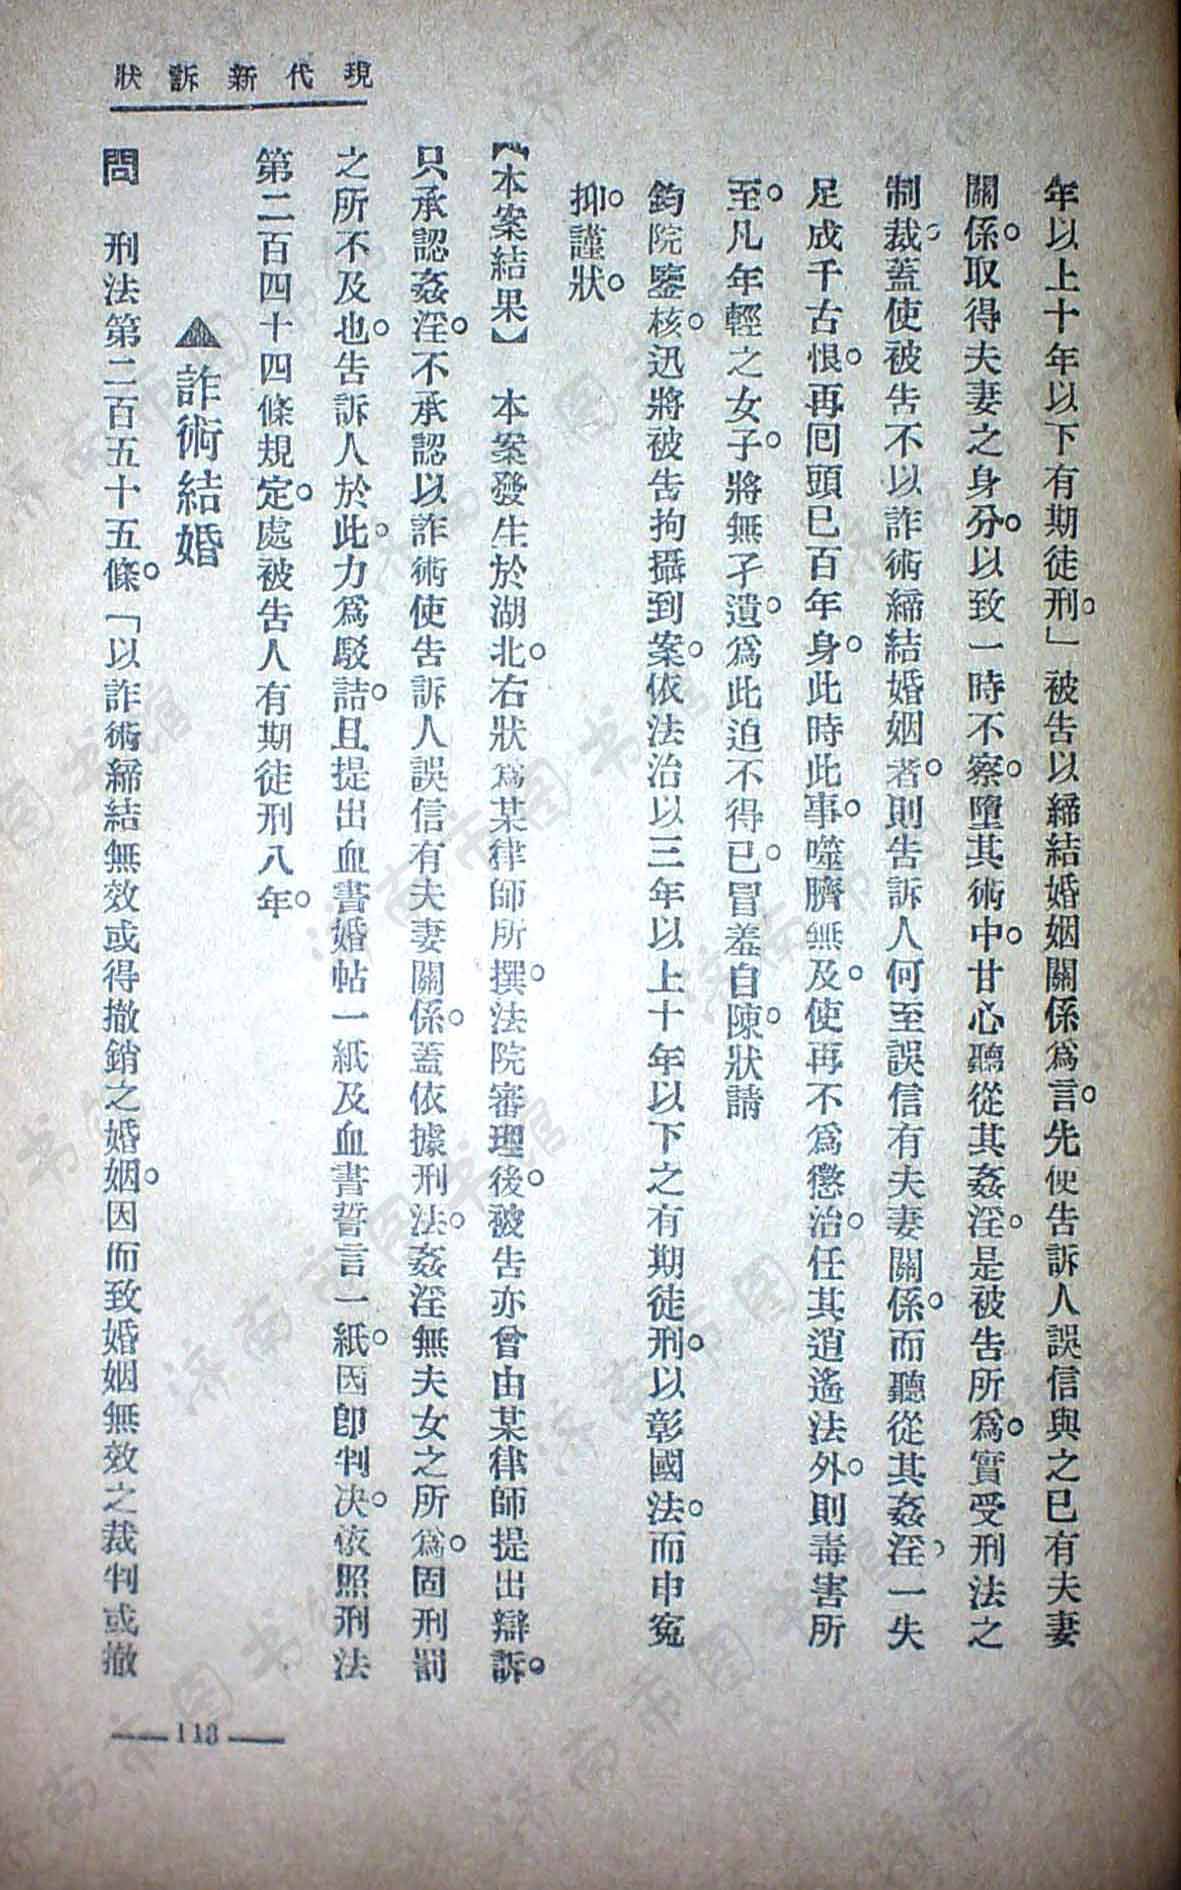 現代新訴狀
年以上十年以下有期徒刑。」被告以締結婚姻關係爲言。先使告訴人誤信與之已有夫妻
關係。取得夫妻之身分。以致一時不察。墮其術中。甘心聽從其姦淫。是被告所爲。實受刑法之
制裁。蓋使被告不以詐術締結婚姻者。則告訴人何至誤信有夫妻關係。而聽從其姦淫。一失
足成千古恨。再囘頭已百年身。此時此事。噬臍無及。使再不爲懲治。任其逍遙法外。則毒害所
至。凡年輕之女子。將無孑遺。爲此迫不得已。冒羞自陳。狀請
鈞院鑒核。迅將被告拘攝到案。依法治以三年以上十年以下之有期徒刑。以彰國法。而申寃
抑。謹狀。
【本案結果】　本案發生於湖北。右狀爲某律師所撰。法院審理後。被告亦曾由某律師提出辯訴。
只承認姦淫。不承認以詐術使告訴人誤信有夫妻關係。蓋依據刑法。姦淫無夫女之所爲。固刑罰
之所不及也。告訴人於此。力爲駁詰。且提出血書婚帖一紙及血書誓言一紙。因卽判决。依照刑法
第二百四十四條規定。處被告人有期徒刑八年。
▲詐術結婚
問　刑法第二百五十五條。「以詐術締結無效或得撤銷之婚姻。因而致婚姻無效之裁判或撤
113
济南市图书馆